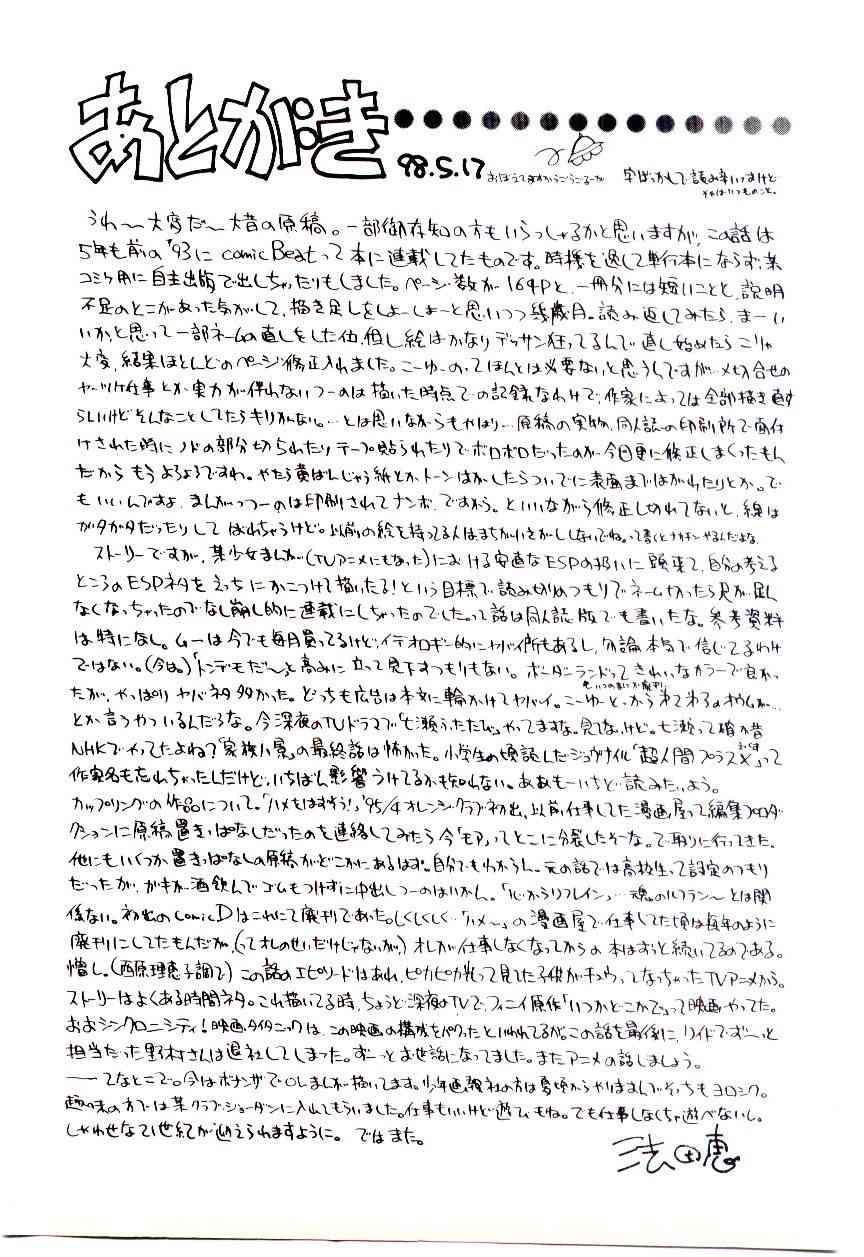 あとがき
98.5.17
おぼえてますかうごうごるーが
字ばっかしで読み辛いっすけど
それはいつものこと。
うわ〜大変だ〜大昔の原稿。一部御存知の方もいらっしゃるかと思いますが、この話は
5年も前の'93にcomic Beatって本に連載してたものです。時機を逸して単行本にならず、某
コミケ用に自主出版で出しちゃったりもしました。ページ数が164Pと、一冊分には短いことと、説明
不足のとこがあった気がして、描き足しをしよーしよーと思いつつ幾歳月。読み返してみたら、まーい
いかと思って一部ネームの直しをした位、但し絵はかなりデッサン狂ってるんで直し始めたらこりゃ
大変、結果ほとんどのページ修正入れました。こーゆーのってほんとは必要ないと思うんですが…〆切合せの
やっつけ仕事とか、実力が伴わないっつーのは描いた時点での記録なわけで、作家によっては全部描き直す
らしいけどそんなことしてたらキリがない。…とは思いながらもやはり…原稿の実物、同人誌の印刷所で面付
けされた時にノドの部分切られたりテープ貼られたりでボロボロだったのが今回更に修正しまくったもん
だからもうよろよろですわ。やたら黄ばんじゃう紙とか、トーンはがしたらついでに表面まではがれたりとか。で
もいいんですよ、まんがっつーのは印刷されてナンボ、ですから。といいながら修正し切れてないと、線は
がタガタだったりして ばれちゃうけど。以前の絵を持ってる人はまちがいさがししないでね。って書くとナカナンやるんだよな。
ストーリーですが、某少女まんが(TVアニメにもなった)における安直なESPの扱いに頭来て、自分の考える
ところのESPネタをえっちにかこつけて描いたる!という目標で、読み切りのつもりでネーム切ったら尺が足ん
なくなっちゃったのでなし崩し的に連載にしちゃったのでした。って話は同人誌版でも書いたな。参考資料
は特になし。ムーは今でも毎月買ってるけど、イデオロギー的にヤバイ所もあるし、勿論本気で信じてるわけ
ではない。(今は。)「トンデモだ〜」と高みに立って見下すつもりもない。ボーダーランドってきれいなカラーで良かっ
たが、やっぱりヤバネタ多かった。どっちも広告は本文に輪かけてヤバイ。こーゆーとっからわてわろのオウムが…
といつのまにか廃刊。
とか言うやついるんだろな。今深夜のTVドラマで「七瀬ふたたび」やってますな。見てないけど。七瀬って確か昔
NHKでやってたよね?「家族八景」の最終話は怖かった。小学生の頃読んだジュヴナイル「超人間プラスX」って
作家名も忘れちゃったんだけど、いちばん影響うけてるかも知れない。ああもーいちど読みたいよう。
カップリングの作品について。「ハメをはずそう!」'95/4オレンジクラブ初出、以前仕事してた漫画屋って編集プロダ
クションに原稿置きっぱなしだったのを連絡してみたら今「モア」ってとこに分裂したそーな。で取りに行ってきた。
他にもいくつか置きっぱなしの原稿がどこかにあるはず。自分でもわからん。元の話では高校生って設定のつもり
だったが、ガキが酒飲んでゴムもつけずに中出しっつーのはいかん。「心からリフレイン」…魂のルフラン〜とは関
係ない。初出のcomic Dはこれにて廃刊であった。しくしくしく…「ハメ〜」の漫画屋で仕事してた頃は毎年のように
廃刊にしてたもんだが、(ってオレのせいだけじゃないが、)オレが仕事しなくなってからの本はずっと続いてるのである。
憎し。(西原理恵子調で)この話のエピソードはあれ、ピカピカ光って見てた子供がキュウってなっちゃったTVアニメから。
ストーリーはよくある時間ネタ。これ描いてる時、ちょうど深夜のTVで、フィニイ原作「いつかどこかで」って映画やってた。
おおシンクロニシティ!映画タイタニックは、この映画の構成をパクったといわれてるが。この話を最後に、ワイドでず〜っと
担当だった野村さんは退社してしまった。ずーっとお世話になってました。またアニメの話しましょう。
――てなとこで。今はボナンザでOLまんが描いてます。少年画報社の方は夏頃からやりますんでそっちもヨロシク。
趣味の方では某クラブ・ジョーダンに入れてもらいました。仕事もいいけど遊びもね。でも仕事しなくちゃ遊べないし。
しあわせな21世紀が迎えられますように。ではまた。
法田恵